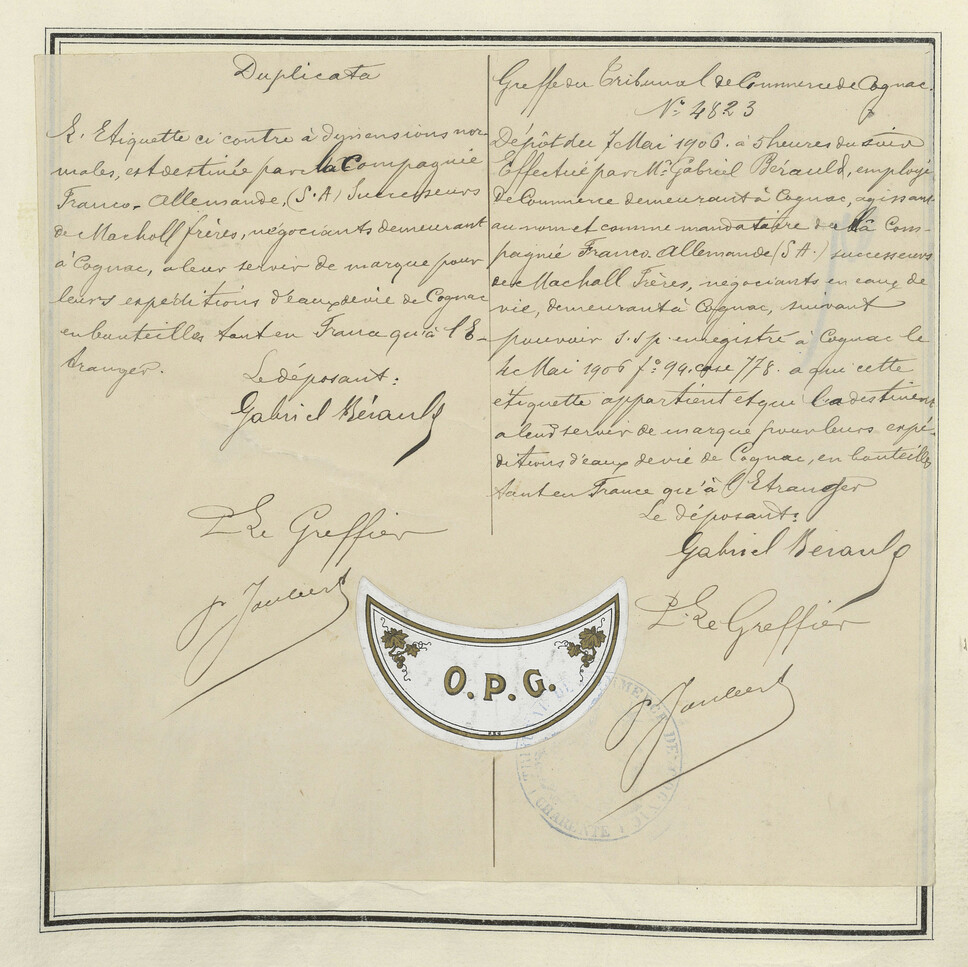 Duplicata
L'Etiquette ci contre à dimensions nor-
males, est destinée par la Compagnie
Franco-Allemande, (S.A) Successeurs
de Macholl frères, négociants demeurant
à Cognac, a leur servir de marque pour
leurs expéditions d'eaux de vie de Cognac
en bouteilles tant en France qu'à l'E-
tranger.
Le déposant:
Gabriel Bérauld
P. Le Greffier
Greffe du Tribunal de Commerce de Cognac.
N° 4823
Dépôt du 7 Mai 1906. à 5 heures du soir
Effectué par Mr. Gabriel Bérauld, employé
de Commerce demeurant à Cognac, agissant
au nom et comme mandataire de la Com-
pagnie Franco-Allemande (S A.) successeurs
de Macholl Frères, négociants en eaux de
vie, demeurant à Cognac, suivant
pouvoir S.S.p. enregistré à Cognac le
4 Mai 1906 f° 94. case 778. a qui cette
étiquette appartient et qui la destinent
a leur servir de marque pour leurs expé-
ditions d'eaux de vie de Cognac, en bouteilles
tant en France qu'à l'Etranger
Le déposant:
Gabriel Bérauld
P. Le Greffier
O.P.G.
TRIBUNAL DE COMMERCE DE COGNAC
CHARENTE